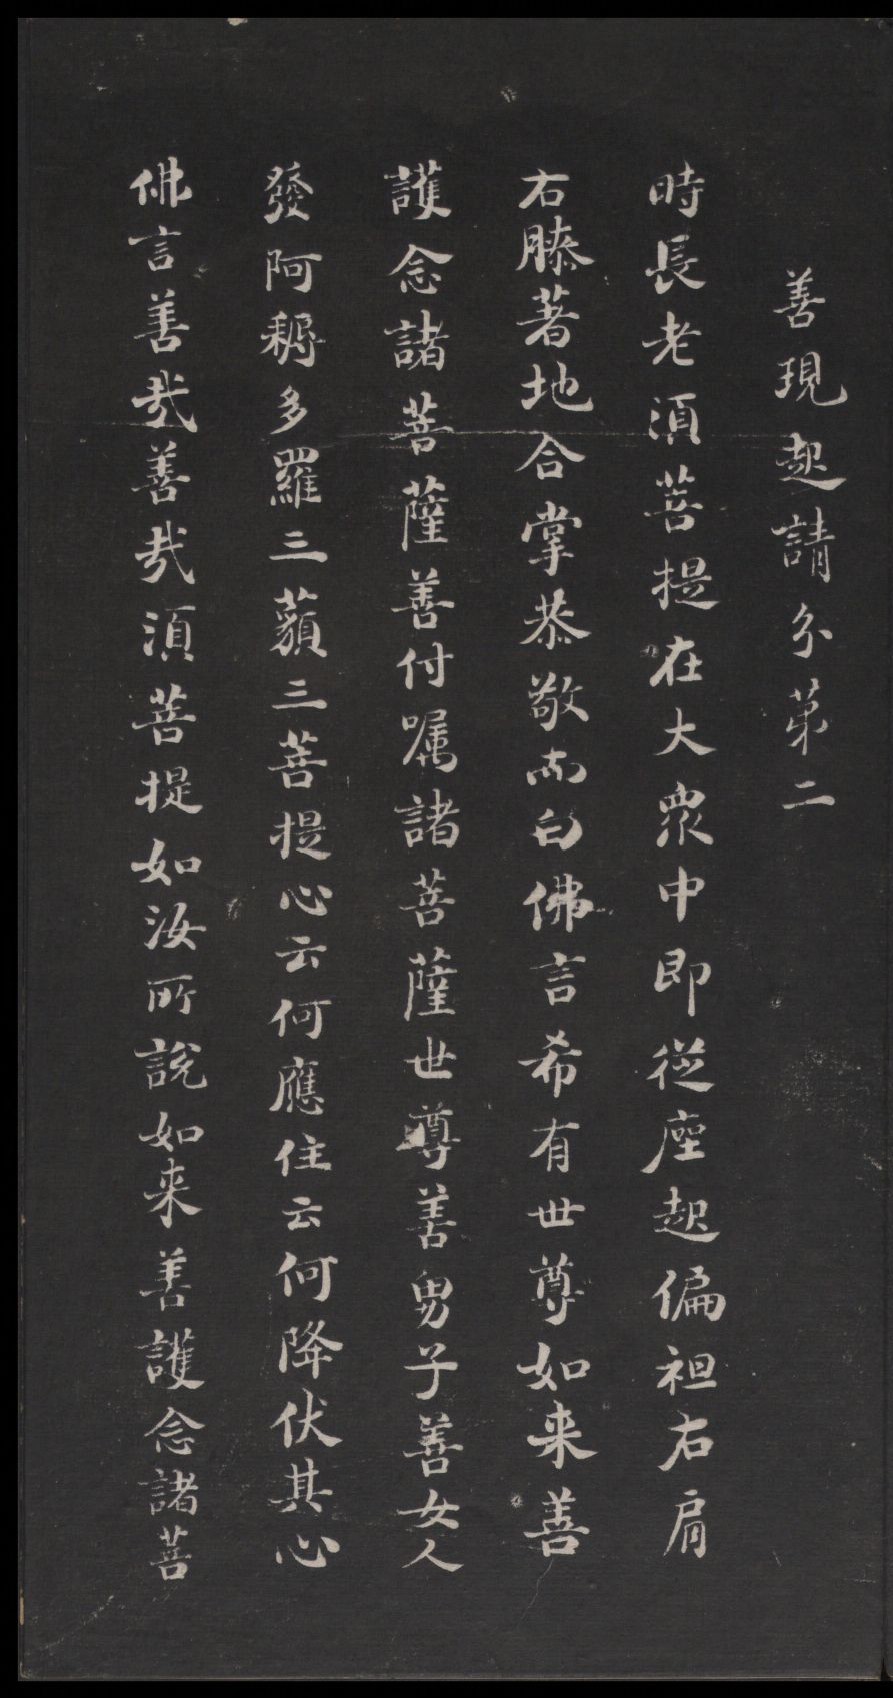 善現起請分第二
時長老須菩提在大衆中即從座起偏袒右肩
右膝著地合掌恭敬而白佛言希有世尊如来善
護念諸菩薩善付囑諸菩薩世尊善男子善女人
發阿耨多羅三藐三菩提心云何應住云何降伏其心
佛言善哉善哉須菩提如汝所說如来善護念諸菩